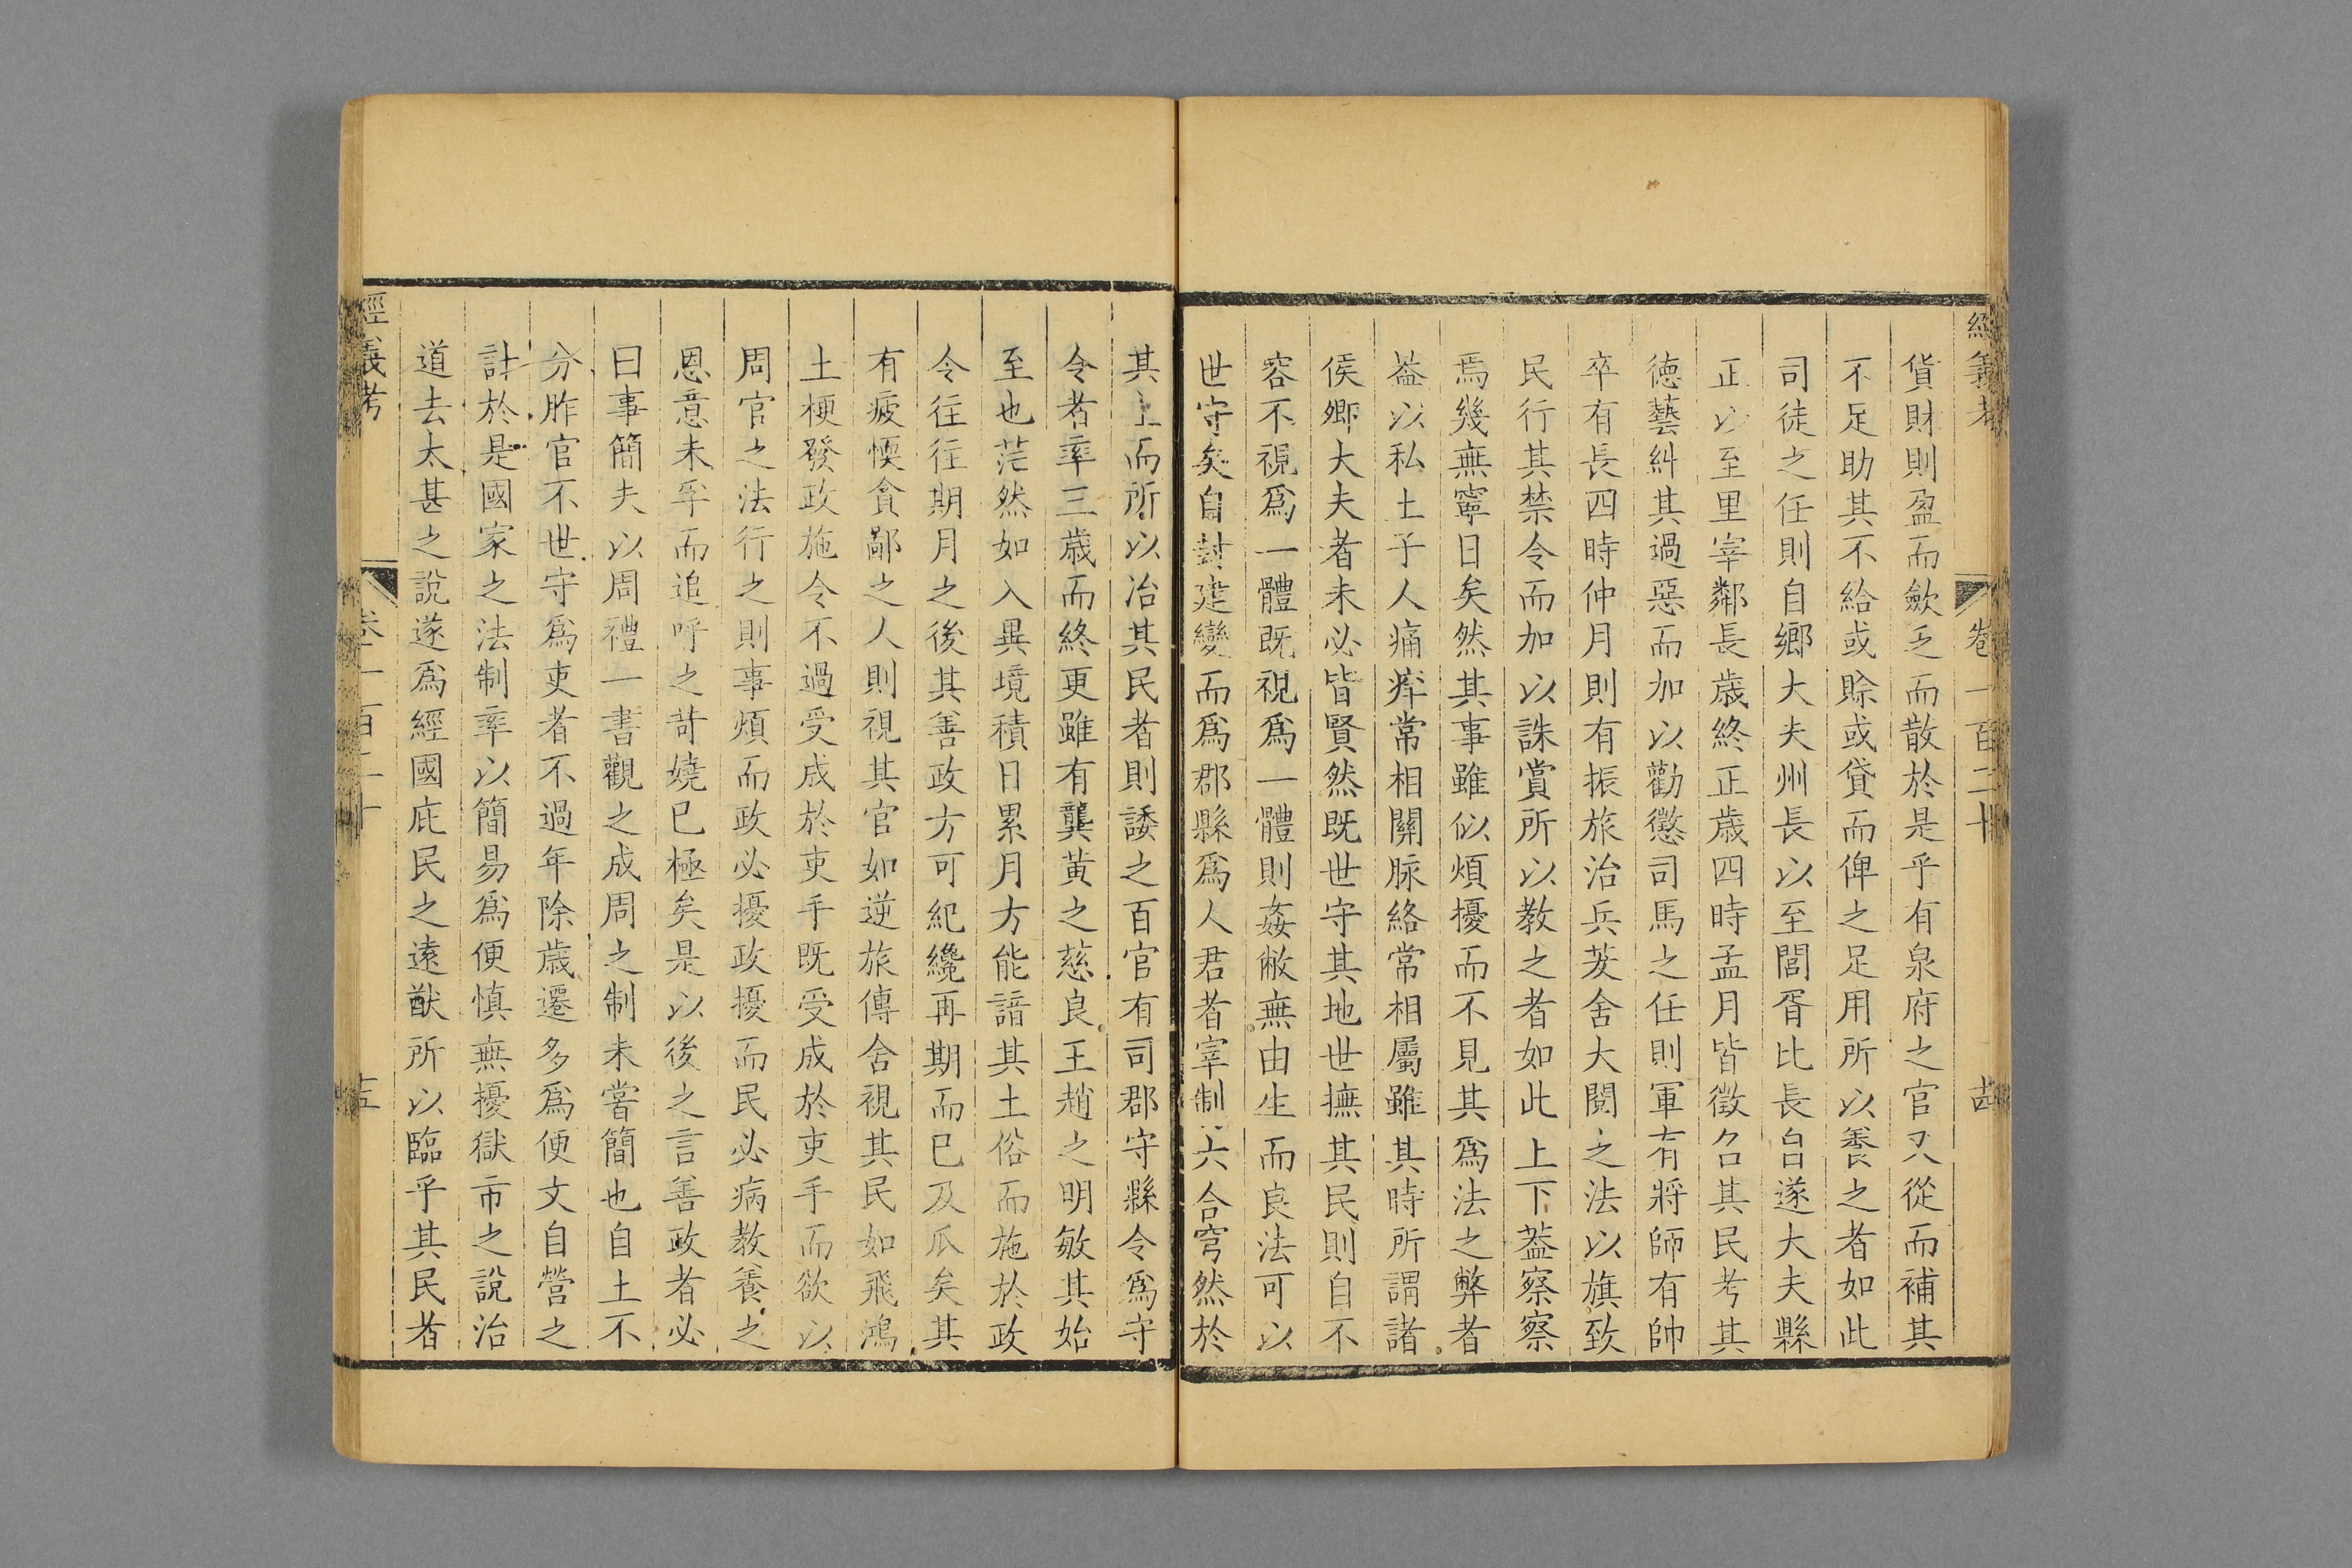 經義考 卷一百二十 十四
貨財則盈而斂乏而散於是乎有泉府之官又從而補其
不足助其不給或賒或貸而俾之足用所以養之者如此
司徒之任則自鄉大夫州長以至閭胥比長自遂大夫縣
正以至里宰鄰長歲終正歲四時孟月皆徵召其民考其
德藝糾其過惡而加以勸懲司馬之任則軍有將師有帥
卒有長四時仲月則有振旅治兵茇舍大閱之法以旗致
民行其禁令而加以誅賞所以教之者如此上下葢察察
焉幾無寧日矣然其事雖似煩擾而不見其為法之弊者
葢以私土子人痛癢常相關脉絡常相屬雖其時所謂諸
侯卿大夫者未必皆賢然既世守其地世撫其民則自不
容不視爲一體既視爲一體則姦敝無由生而良法可以
世守矣自封建變而爲郡縣爲人君者宰制六合穹然於
其上而所以治其民者則諉之百官有司郡守縣令爲守
令者率三歲而終更雖有龔黃之慈良王趙之明敏其始
至也茫然如入異境積日累月方能諳其土俗而施於政
令往往期月之後其善政方可紀纔再期而已及瓜矣其
有疲愞貪鄙之人則視其官如逆旅傳舍視其民如飛鴻
土梗發政施令不過受成於吏手既受成於吏手而欲以
周官之法行之則事煩而政必擾政擾而民必病教養之
恩意未孚而追呼之苛嬈已極矣是以後之言善政者必
曰事簡夫以周禮一書觀之成周之制未嘗簡也自土不
分胙官不世守爲吏者不過年除歲遷多爲便文自營之
計於是國家之法制率以簡易爲便慎無擾獄市之說治
道去太甚之說遂爲經國庇民之遠猷所以臨乎其民者
經義考 卷一百二十 十五